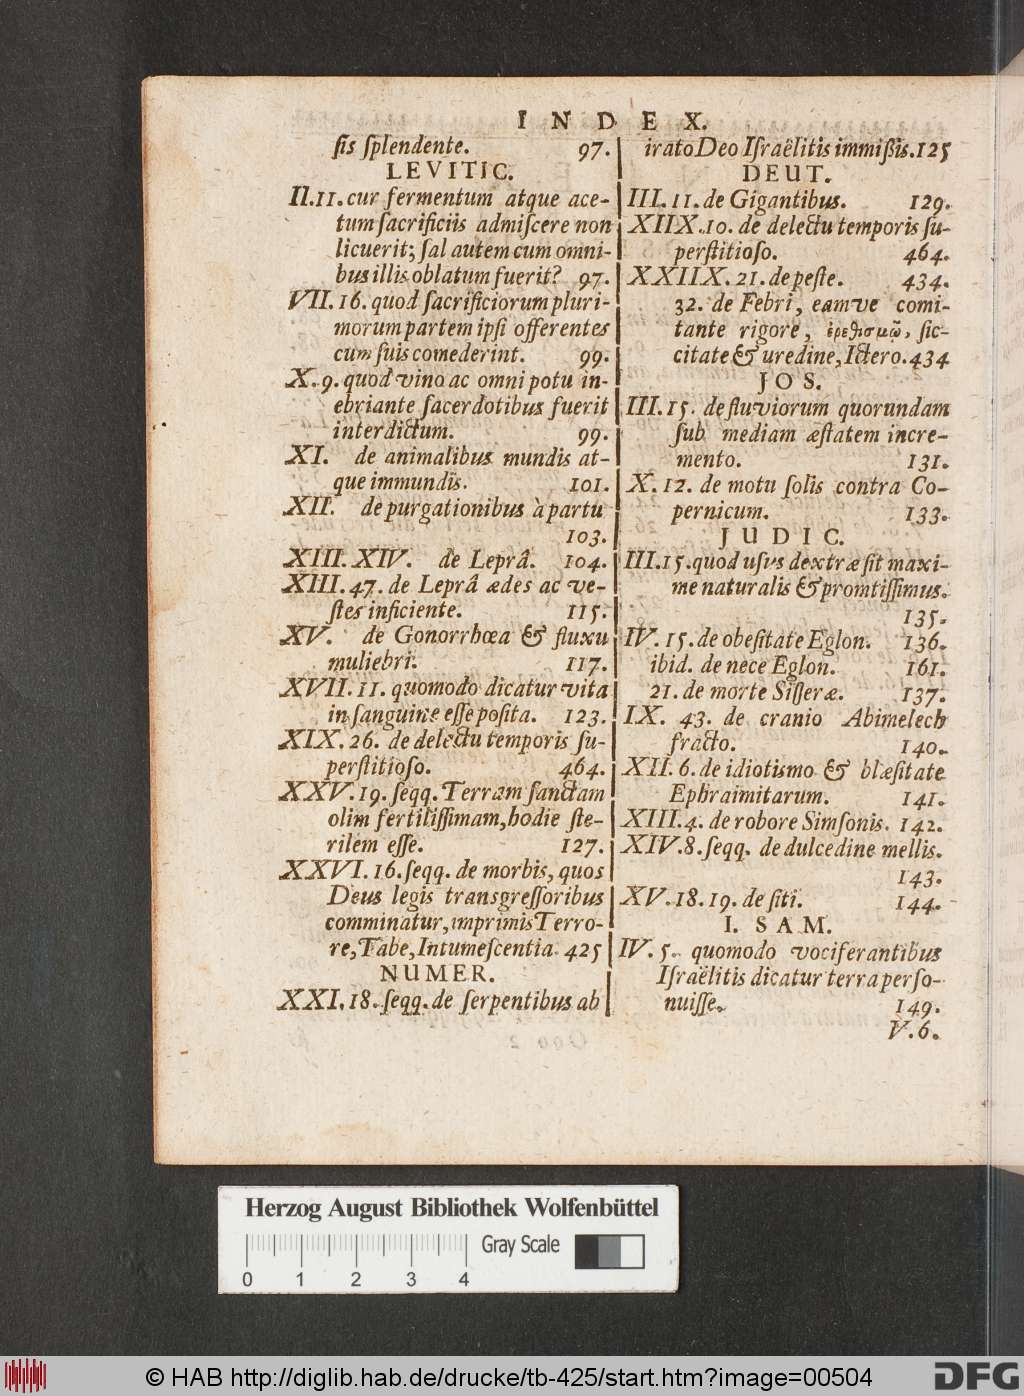 INDEX.
ſis ſplendente. 97.
LEVITIC.
II.11. cur fermentum atque ace-
tum ſacrificiis admiſcere non
licuerit; ſal autem cum omni-
bus illis oblatum fuerit? 97.
VII. 16. quod ſacrificiorum pluri-
morum partem ipſi offerentes
cum ſuis comederint. 99.
X. 9. quod vino ac omni potu in-
ebriante ſacerdotibus fuerit
interdictum. 99.
XI. de animalibus mundis at-
que immundis. 101.
XII. de purgationibus à partu
103.
XIII. XIV. de Leprâ. 104.
XIII. 47. de Leprâ ædes ac ve-
ſtes inficiente. 115.
XV. de Gonorrhœa & fluxu
muliebri. 117.
XVII. 11. quomodo dicatur vita
in ſanguine eſſe poſita. 123.
XIX. 26. de delectu temporis ſu-
perſtitioſo. 464.
XXV. 19. ſeqq. Terram ſanctam
olim fertiliſſimam, hodie ſte-
rilem eſſe. 127.
XXVI. 16. ſeqq. de morbis, quos
Deus legis transgreſſoribus
comminatur, imprimis Terro-
re, Tabe, Intumeſcentia. 425
NUMER.
XXI. 18. ſeqq. de ſerpentibus ab
irato Deo Iſraëlitis immiſſis. 125
DEUT.
III. 11. de Gigantibus. 129.
XIIX. 10. de delectu temporis ſu-
perſtitioſo. 464.
XXIIX. 21. de peſte. 434.
32. de Febri, eamve comi-
tante rigore, ἐρεθισμῷ, ſic-
citate & uredine, Ictero. 434
JOS.
III. 15. de fluviorum quorundam
ſub mediam æſtatem incre-
mento. 131.
X. 12. de motu ſolis contra Co-
pernicum. 133.
JUDIC.
III. 15. quod uſus dextræ ſit maxi-
me naturalis & promtiſſimus.
135.
IV. 15. de obeſitate Eglon. 136.
ibid. de nece Eglon. 161.
21. de morte Siſſeræ. 137.
IX. 43. de cranio Abimelech
fracto. 140.
XII. 6. de idiotismo & blæſitate
Ephraimitarum. 141.
XIII. 4. de robore Simſonis. 142.
XIV. 8. ſeqq. de dulcedine mellis.
143.
XV. 18. 19. de ſiti. 144.
I. SAM.
IV. 5. quomodo vociferantibus
Iſraëlitis dicatur terra perſo-
nuiſſe. 149.
V. 6.
Herzog August Bibliothek Wolfenbüttel
Gray Scale
0 1 2 3 4
© HAB http://diglib.hab.de/drucke/tb-425/start.htm?image=00504
DFG